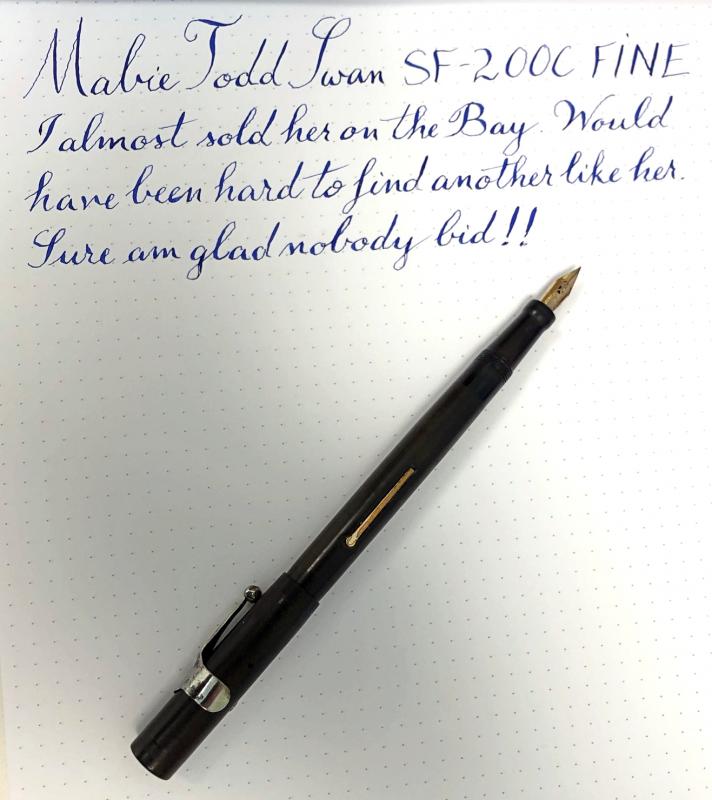 Mabie Todd Swan SF-200C FINE
I almost sold her on the Bay. Would
have been hard to find another like her.
Sure am glad nobody bid!!